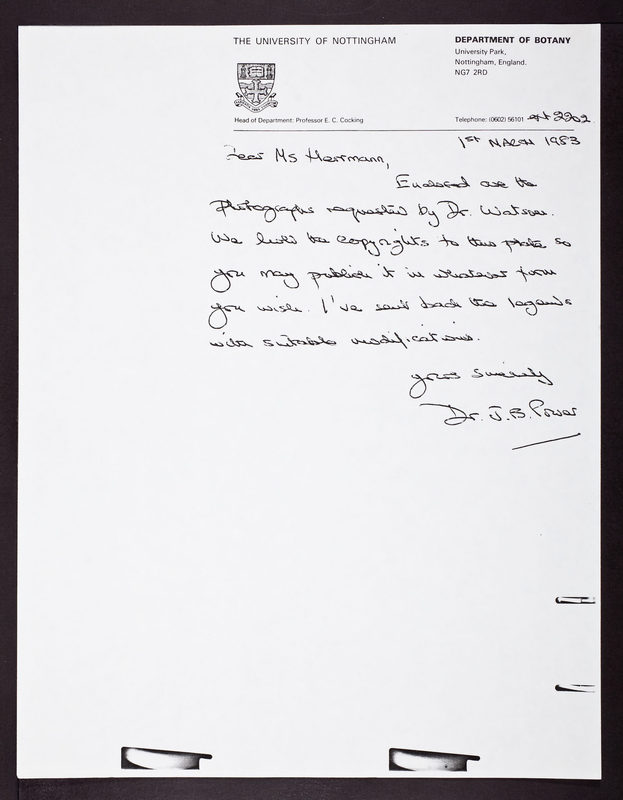 THE UNIVERSITY OF NOTTINGHAM
DEPARTMENT OF BOTANY
University Park,
Nottingham, England.
NG7 2RD
Head of Department: Professor E. C. Cocking
Telephone: (0602) 56101 ext 2202
1st MARCH 1983
Dear Ms Herrmann,
Enclosed are the
photographs requested by Dr. Watson.
We hold the copyrights to the photo so
you may publish it in whatever form
you wish. I've sent back the legends
with suitable modifications.
yours sincerely
Dr. J. B. Power